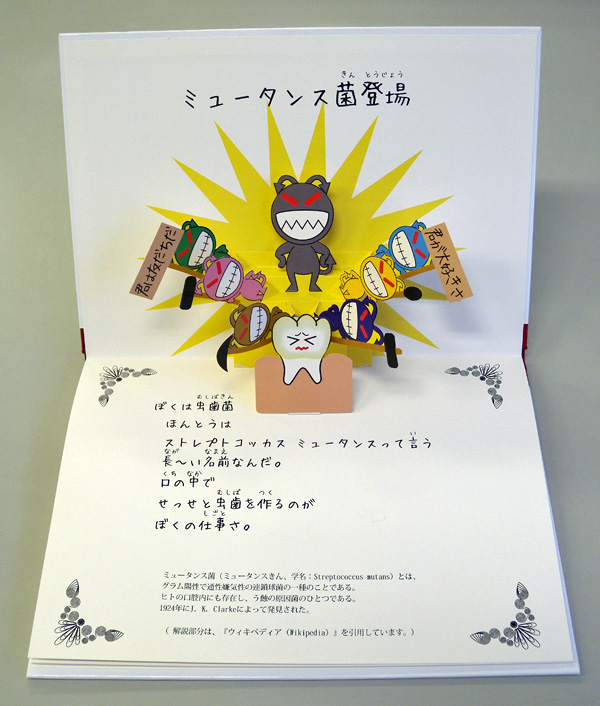 きん とうじょう
ミュータンス菌登場
君は友だちだ
君が大好きさ
むしばきん
ぼくは虫歯菌
ほんとうは
い
ストレプトコッカス ミュータンスって言う
なが なまえ
長〜い名前なんだ。
くち なか
口の中で
むしば つく
せっせと虫歯を作るのが
しごと
ぼくの仕事さ。
ミュータンス菌（ミュータンスきん、学名；Streptococcus mutans）とは、
グラム陽性で通性嫌気性の連鎖球菌の一種のことである。
ヒトの口腔内にも存在し、う蝕の原因菌のひとつである。
1924年にJ. K. Clarkeによって発見された。
（ 解説部分は、『ウィキペディア（Wikipedia）』を引用しています。）